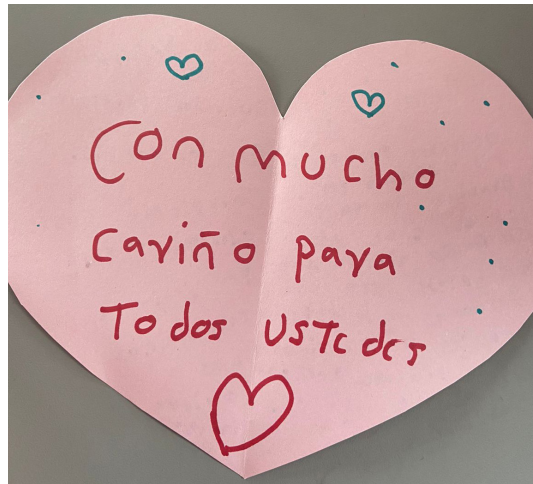 Con mucho
cariño para
Todos ustedes